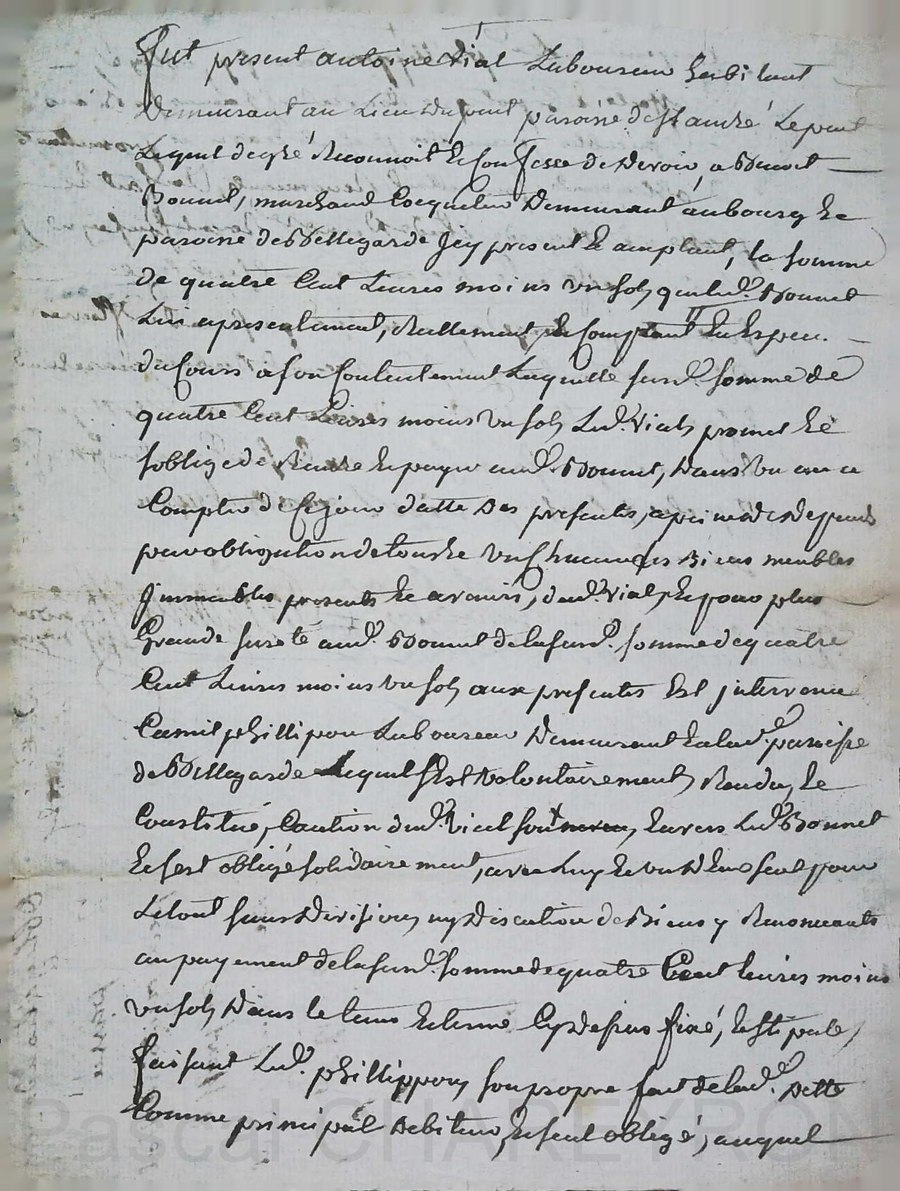 fut present antoine vial Laboureur habitant
Demeurant au Lieu du pont paroisse de st andré Le puit
Lequel de gré Reconnoit & confesse de devoir, a Benoit
Bonnet, marchand Coquetier Demeurant au bourg &
paroisse de Bellegarde Jcy present & acceptant, la somme
de quatre Cent Livres moins un sols que led. Bonnet
Lui a presentement, Reellement & Comptant En Espece
du Cours a son Contentement Laquelle susd. somme de
quatre Cent Livres moins un sols Led. Vial promet &
s'oblige de Rendre & payer aud. Bonnet, Dans un an a
Compter de Ce jour datte Des presentes, a peine de depends
par obligation de tous & un Chacuns ses Biens meubles
Jmmeubles presents & avenirs, dud. vial, & pour plus
Grande sureté aud. Bonnet de la susd. somme de quatre
Cent Livres moins un sols aux presentes Est jntervenu
Camil phillipon Laboureur Demeurant En lad. paroisse
de Bellegarde Lequel s'Est volontairement Rendu, &
Constitué, Caution dud. vial Envers Led. Bonnet
& s'est obligé solidairement, avec Luy & un d'Eux seul pour
Le tout sans Division, ny Discution de Biens y Renonceants
au payement de la susd. somme de quatre Cent Livres moins
un sols Dans le tems & terme Cy dessus fixé, & stipulé,
faisant Led. phillippon, son propre fait de lad. Dette
Comme principal Debiteur, & seul obligé, auquel
Pascal CHAREYRON